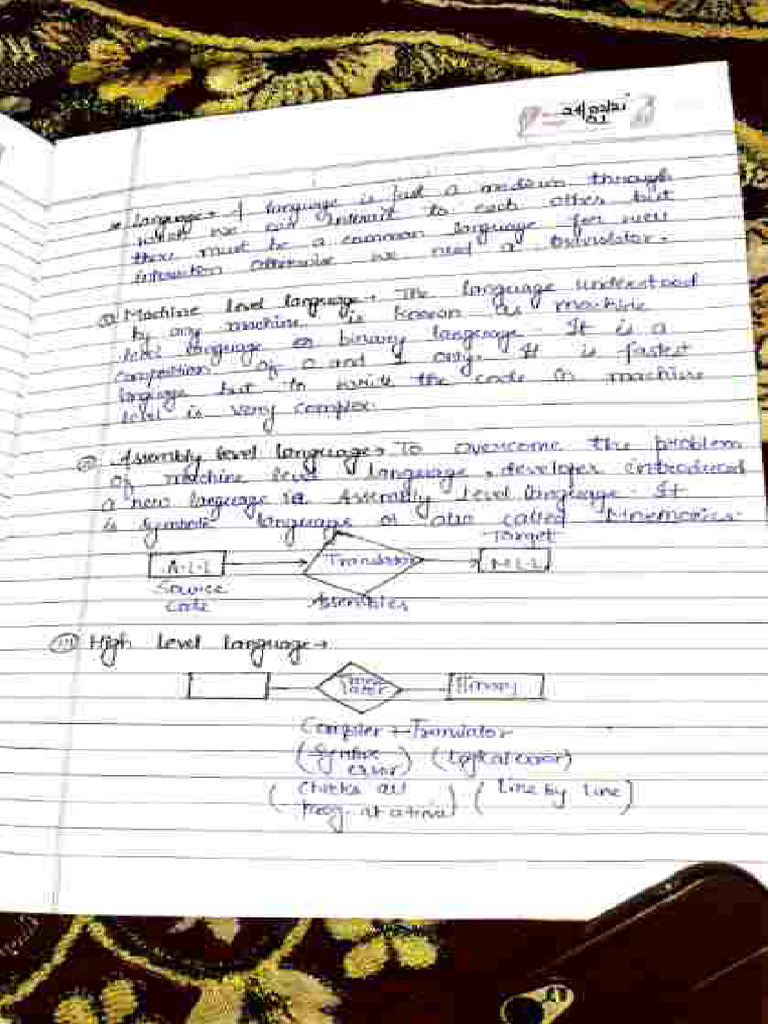 24/02/21
Language → A language is just a medium through
which we can interact to each other but
there must be a common language for
otherwise we need a translator.
(i) Machine level language → The language understood
by any machine is known as machine
level language or binary language. It is a
composition of 0 and 1 only. It is fastest
language but to write the code in machine
level is very complex.
(ii) Assembly level language → To overcome the problem
of machine level language, developer introduced
a new language i.e. Assembly level language. It
is symbolic language or also called Mnemonics.
Target
A.L.L Translator M.L.L
Source
code Assembler
(iii) High Level Language →
Trans
lator Binary
Compiler Translator
(Syntax (Logical error)
error)
(Checks all (Line by line)
prog. at a time)